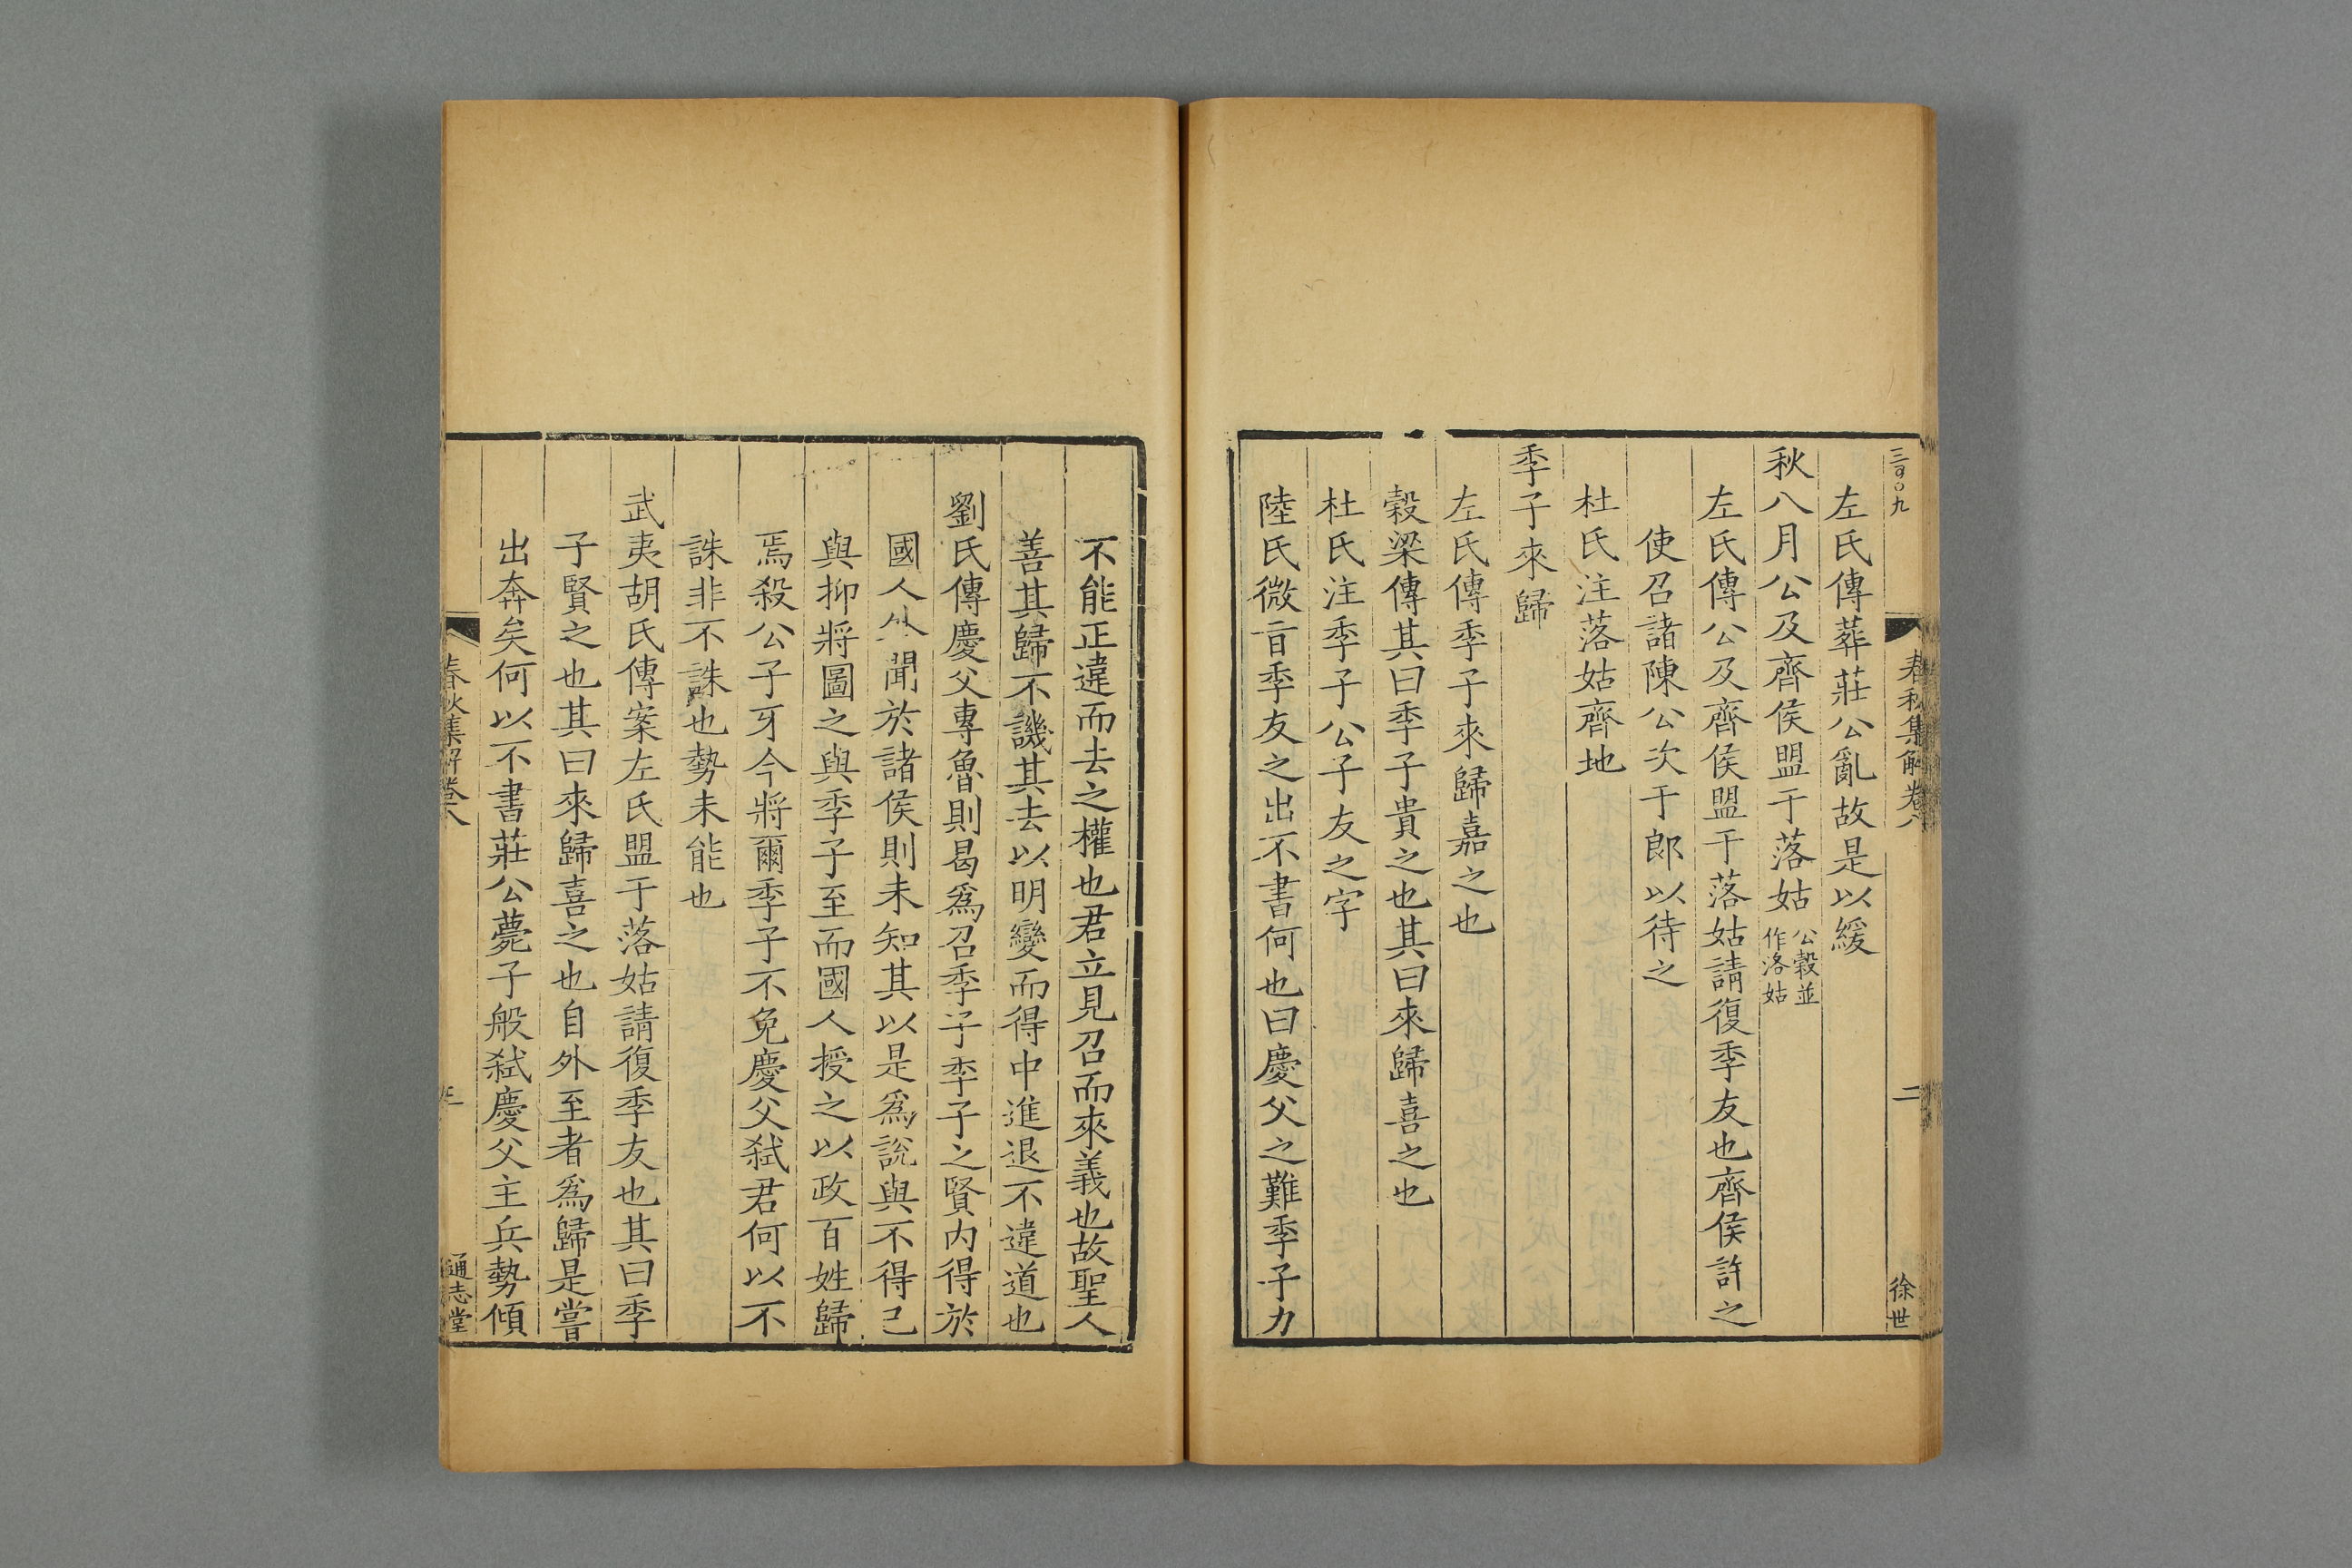 春秋集解卷八
二
徐世
左氏傳葬莊公亂故是以緩
秋八月公及齊侯盟于落姑公穀並作洛姑
左氏傳公及齊侯盟于落姑請復季友也齊侯許之
使召諸陳公次于郎以待之
杜氏注落姑齊地
季子來歸
左氏傳季子來歸嘉之也
穀梁傳其曰季子貴之也其曰來歸喜之也
杜氏注季子公子友之字
陸氏微旨季友之出不書何也曰慶父之難季子力
不能正違而去之權也君立見召而來義也故聖人
善其歸不譏其去以明變而得中進退不違道也
劉氏傳慶父專魯則曷爲召季子季子之賢内得於
國人外聞於諸侯則未知其以是爲說與不得已
與抑將圖之與季子至而國人授之以政百姓歸
焉殺公子牙今將爾季子不免慶父弑君何以不
誅非不誅也勢未能也
武夷胡氏傳案左氏盟于落姑請復季友也其曰季
子賢之也其曰來歸喜之也自外至者爲歸是嘗
出奔矣何以不書莊公薨子般弑慶父主兵勢傾
春秋集解卷八
通志堂